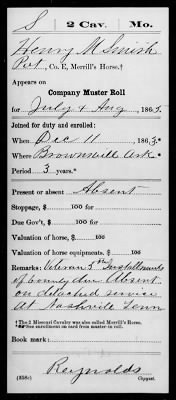 S | 2 Cav. | Mo.
Henry M Smith
Pvt, Co. E, Merrill's Horse.†
Appears on
Company Muster Roll
for July & Aug, 1865.
Joined for duty and enrolled:
When Dec 11, 1863.*
Where Brownsville Ark *
Period 3 years.*
Present or absent Absent
Stoppage, $ 100 for
Due Gov't, $ 100 for
Valuation of horse, $ 100
Valuation of horse equipments, $ 100
Remarks: Veteran 5th Installments
of bounty due Absent
on detached service
At Nashville Tenn
† The 2 Missouri Cavalry was also called Merrill's Horse.
*See enrollment on card from muster-in roll.
Book mark:
Reynolds
(358c) Copyist.